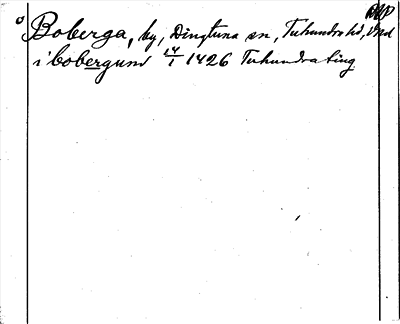 Boberga, by, Dingtuna sn, Tuhundra hd, Vsd
i bobergum 14/1 1426 Tuhundra ting